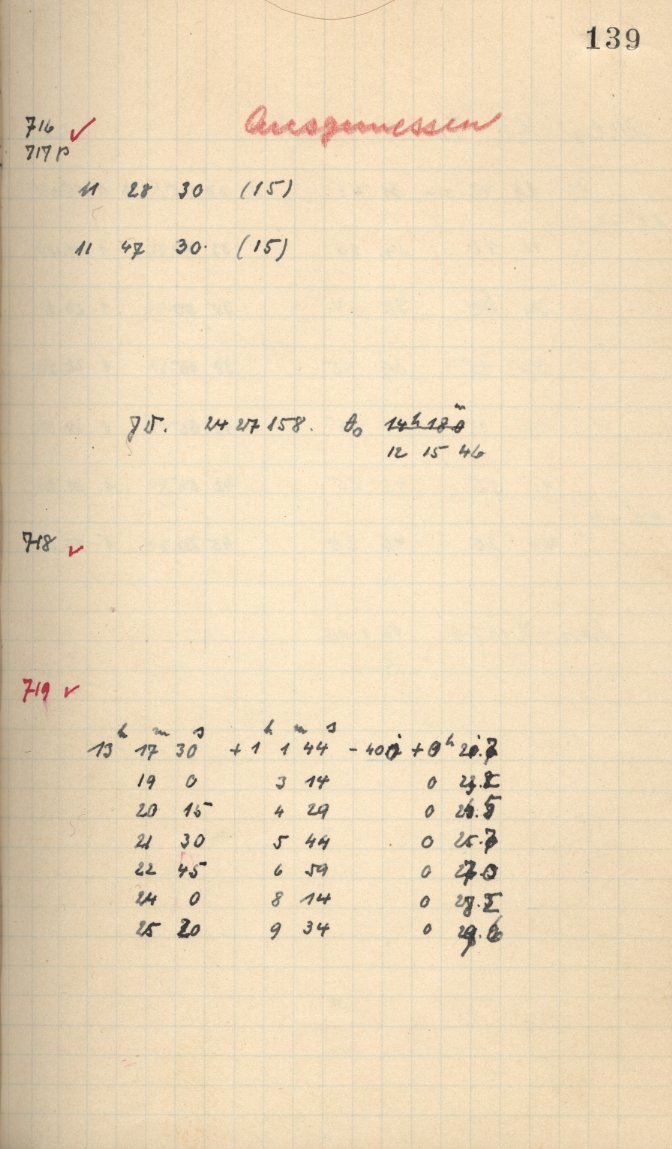 139
Ausgemessen
716 ✓
717 p
11 28 30 (15)
11 47 30. (15)
J.D. 24 27 158. θ₀ 14 h 18 m
12 15 46
718 ✓
719 ✓
h m s h m s
13 17 30 +1 1 44 - 40 + 0 h
19 0 3 14 0
20 15 4 29 0
21 30 5 44 0 25.7
22 45 6 59 0 27.0
24 0 8 14 0
25 20 9 34 0